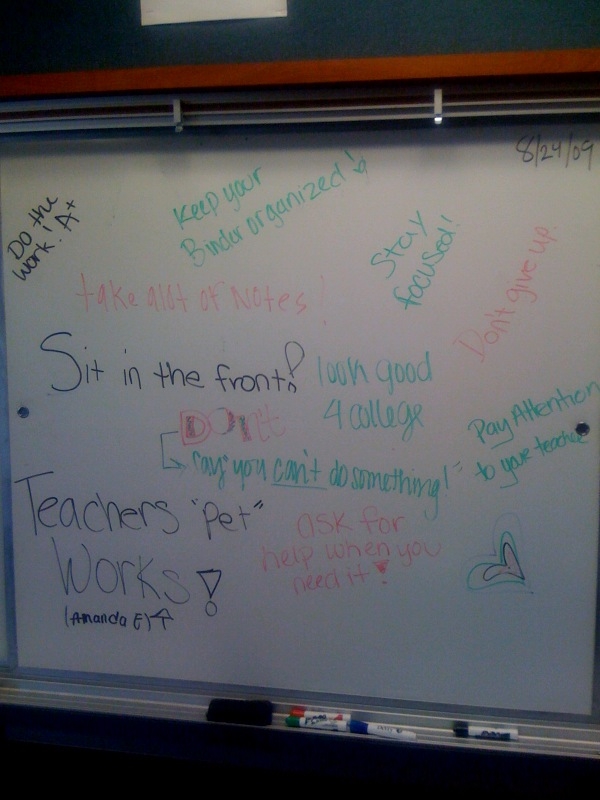 8/24/09
Do the
work! A+
Keep your
Binder organized!
Stay
focused!
Don't give up
take alot of Notes!
Sit in the front!
look good
4 college
Don't
say "you can't do something!"
Pay Attention
to your teacher
Teachers "Pet"
Works!
(Amanda E)
ask for
help when you
need it!